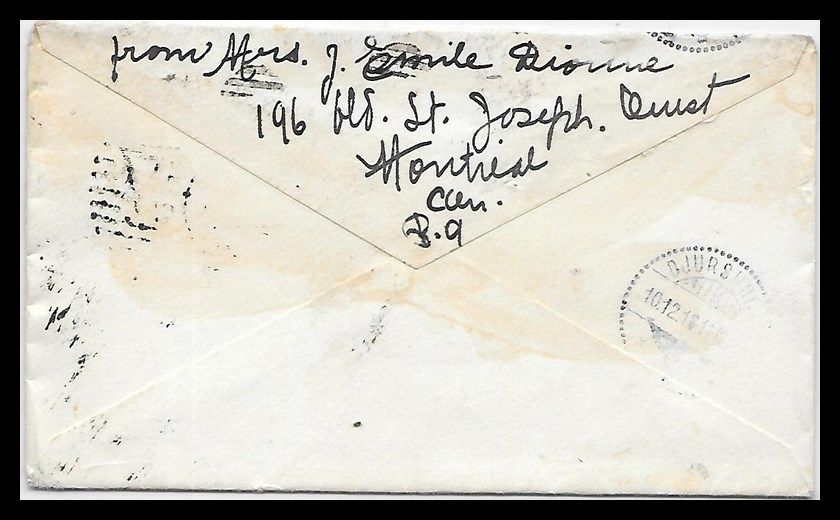 from Mrs. J. Emile Dionne
196 bld. St. Joseph. Ouest
Montréal
Can.
P.Q
DJURS
10.12.19